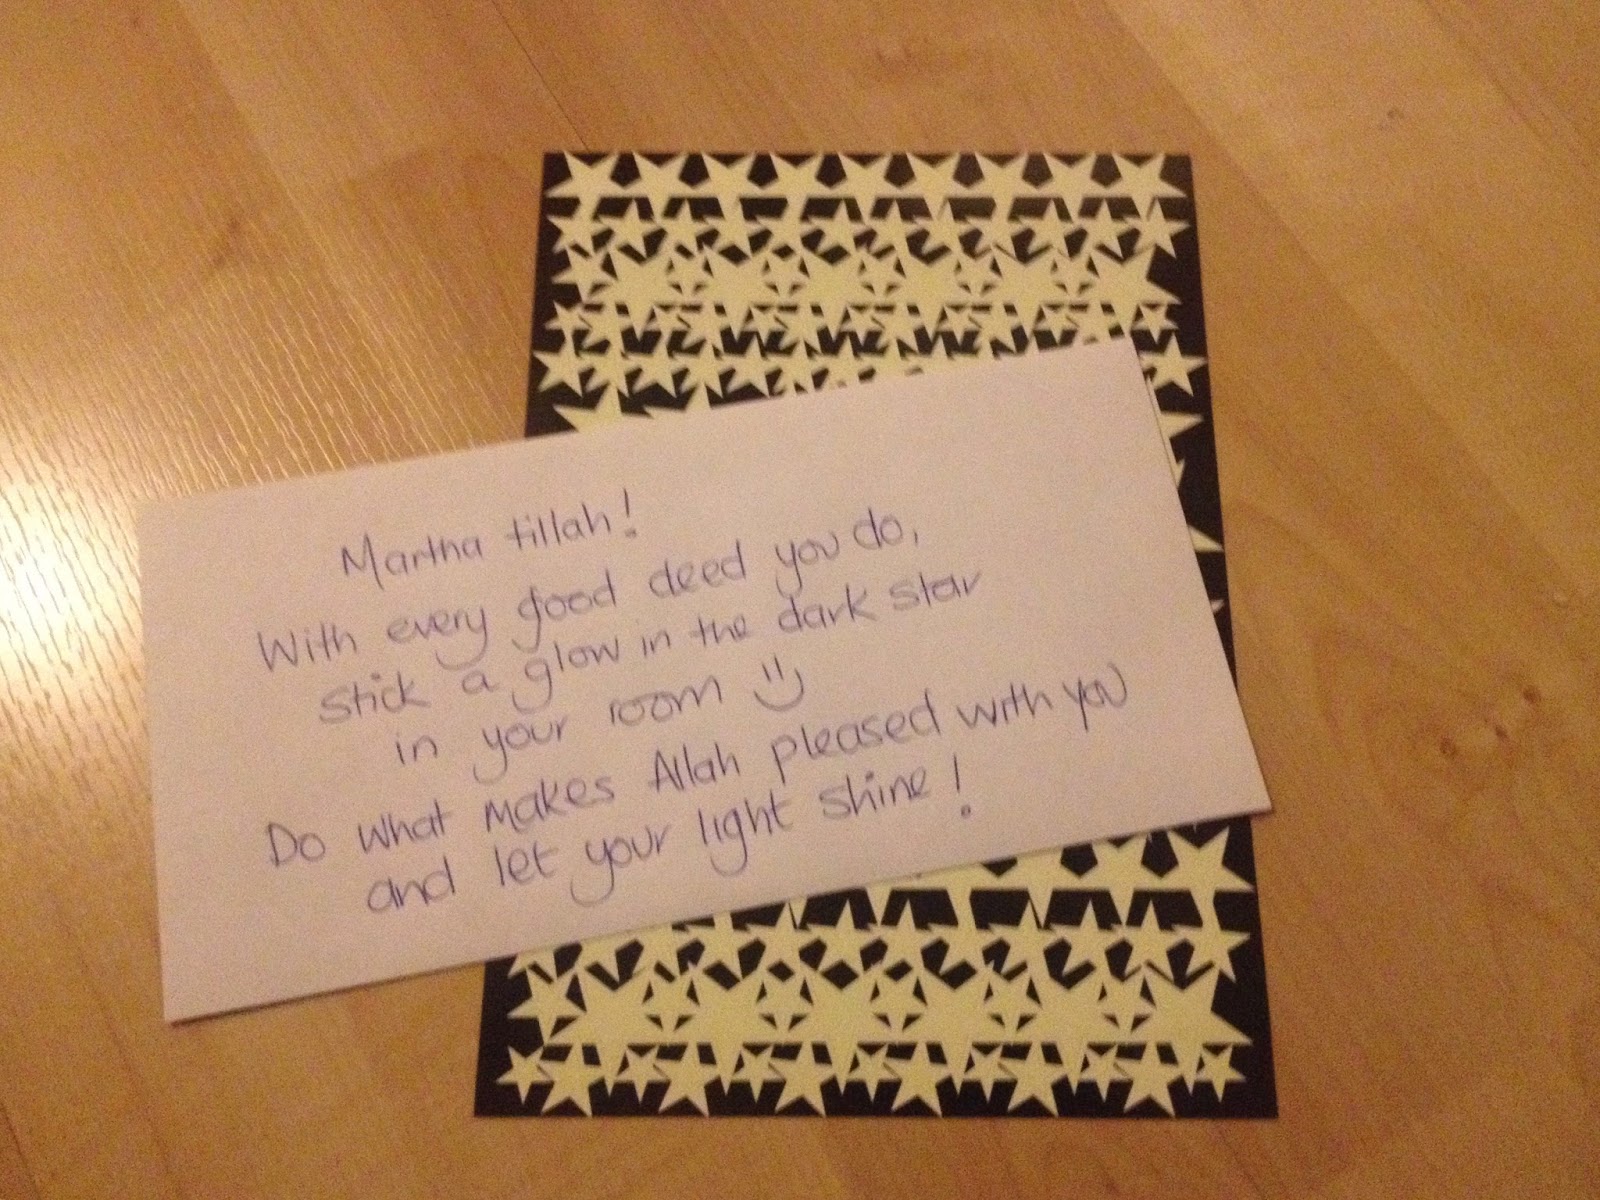 Martha tillah!
With every good deed you do,
stick a glow in the dark star
in your room
Do what makes Allah pleased with you
and let your light shine!